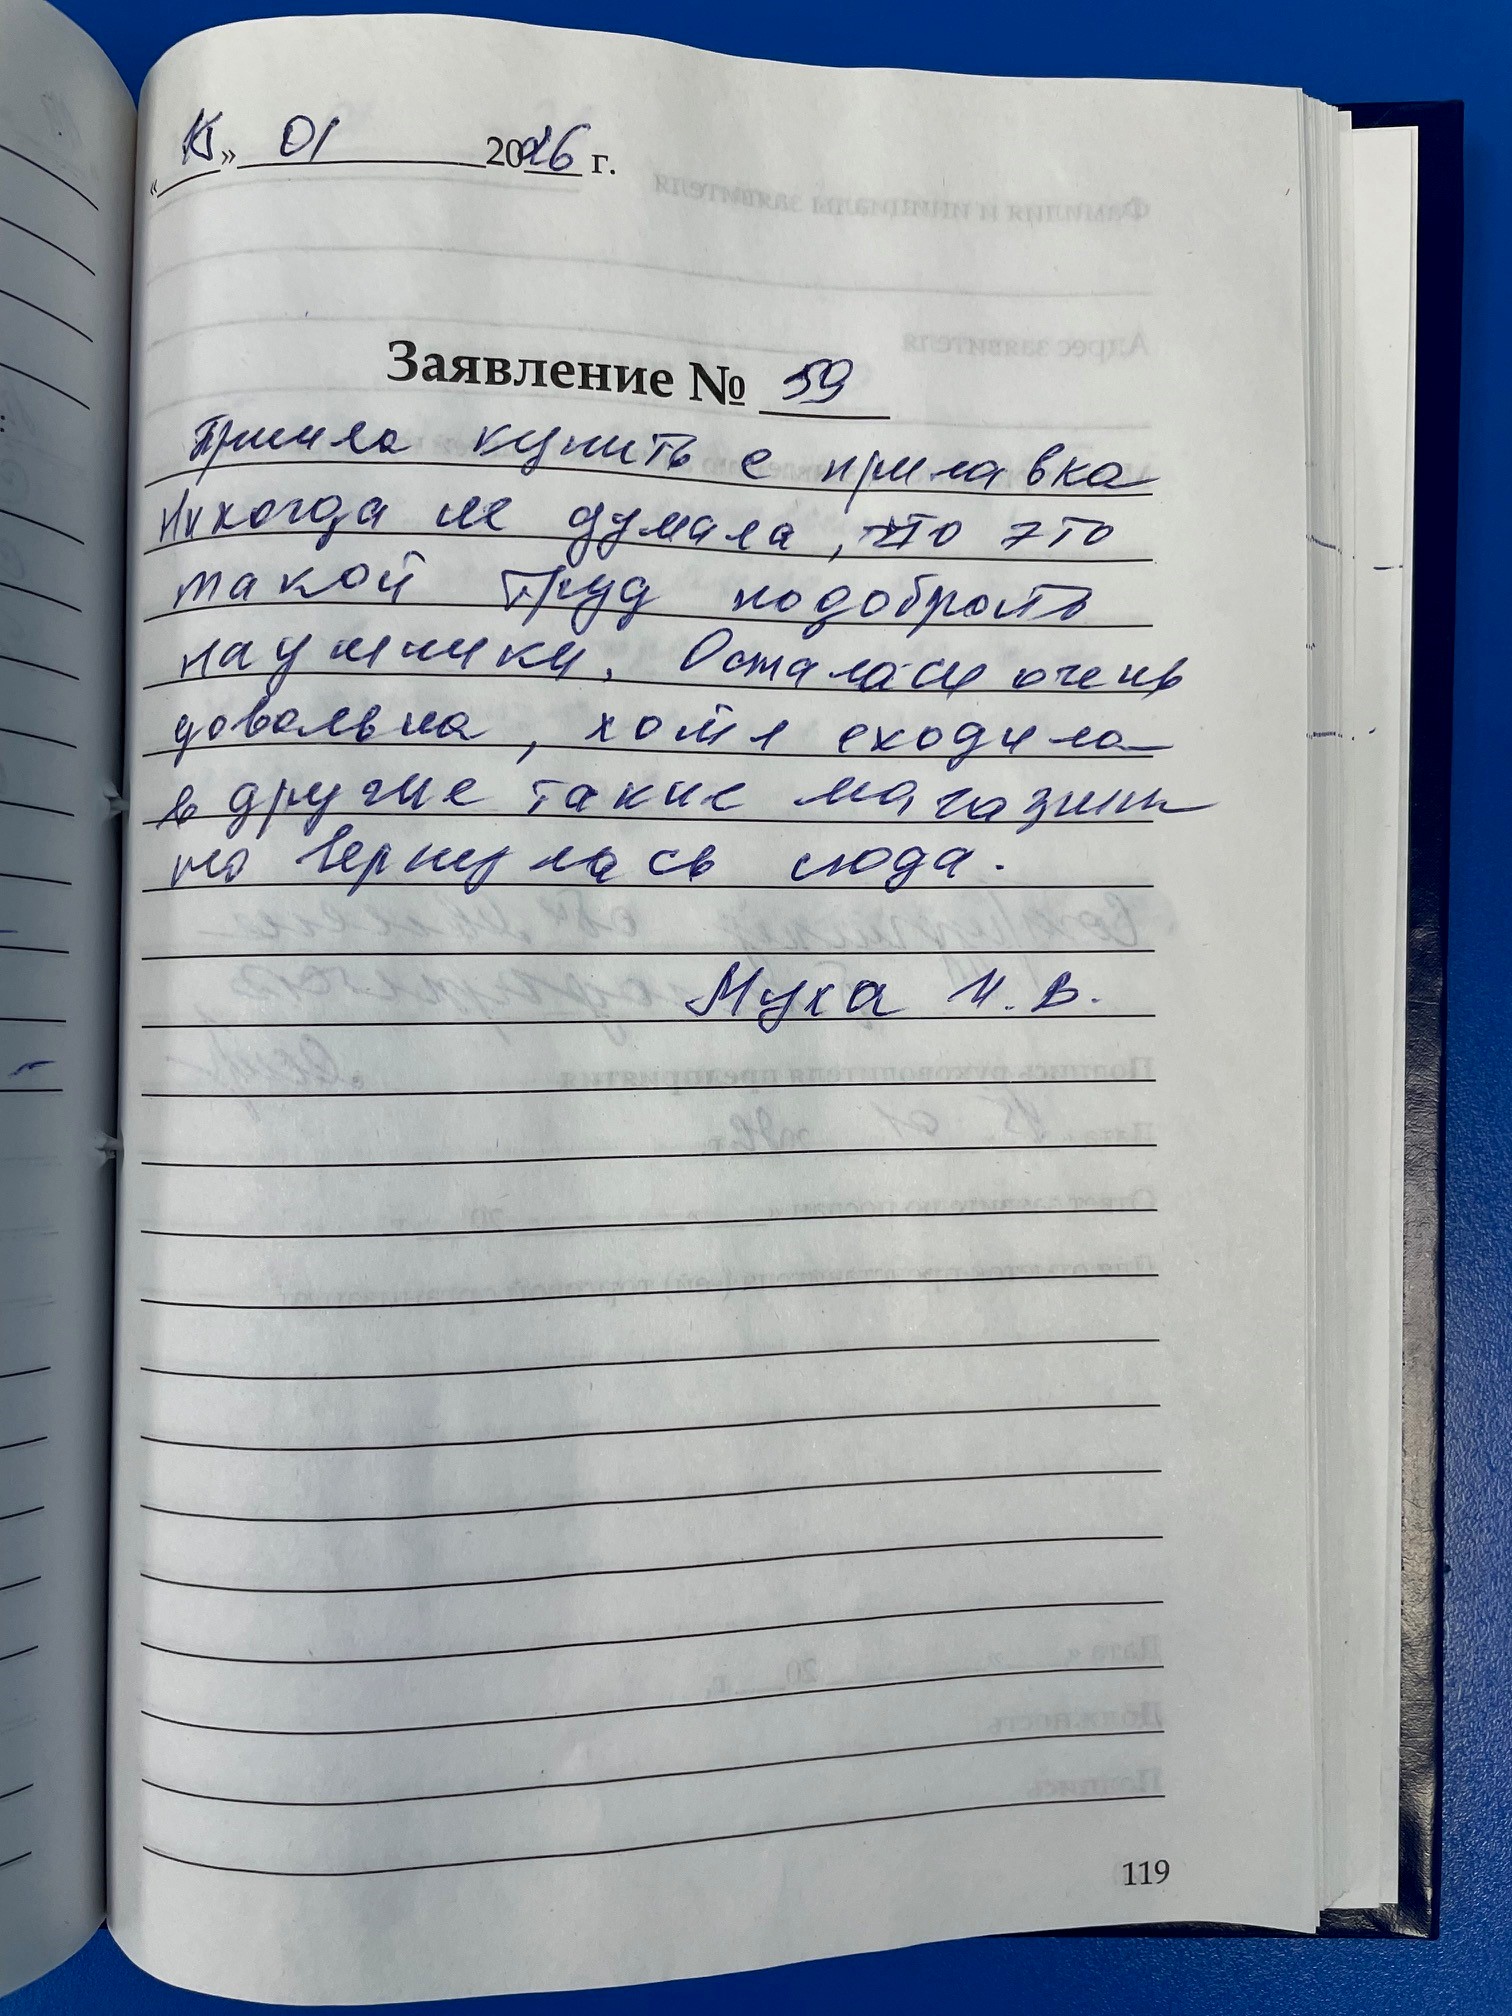 «15» 01 2026 г.
Заявление № 59
Пришла купить с прилавка
Никогда не думала, что это
такой труд подобрать
наушники. Осталась очень
довольна, хотя сходила
в другие такие магазины
но вернулась сюда.
Муха И. В.
119